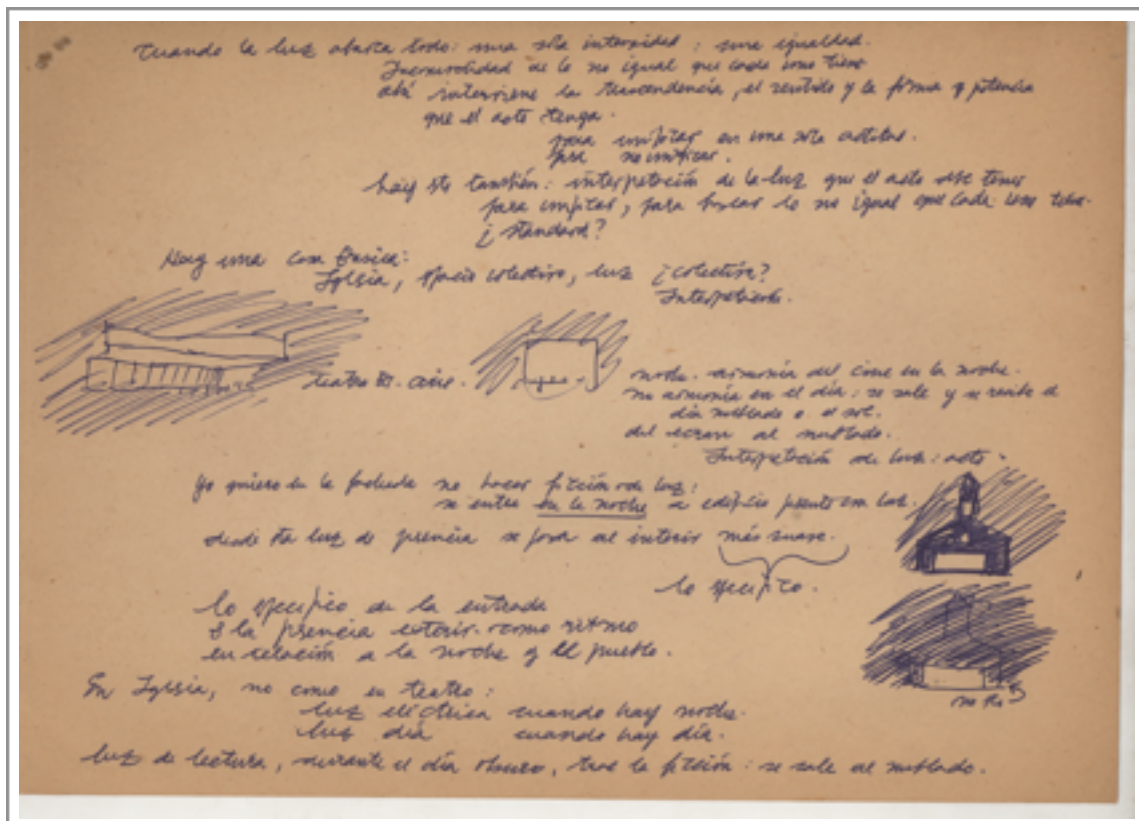 Cuando la luz abarca todo: una sola intensidad: una igualdad.
de lo no igual que cada uno tiene
ahí interviene la trascendencia, el sentido y la forma y potencia
que el acto tenga.
para unificar en una sola actitud.
para no unificar.
hay sto también: interpretación de la luz que el acto debe tener
para unificar, para buscar lo no igual que cada uno tiene.
¿standard?
Hay una cosa básica:
Iglesia, espacio colectivo, luz ¿colectiva?
teatro cine.
noche. armonía del cine en la noche.
no armonía en el día: se sale y se recibe el
día nublado o el sol.
del ecran al nublado.
Interpretación de luz: acto.
Yo quiero en la fachada no hacer ficción de luz:
se entra en la noche a edificio con luz.
desde la luz de presencia se pasa al interior más suave.
lo específico.
lo específico de la entrada
es la presencia exterior como ritmo
en relación a la noche y el pueblo.
En Iglesia, no como en teatro:
luz eléctrica cuando hay noche.
luz día cuando hay día.
luz de lectura, durante el día obscuro, trae la ficción: se sale al nublado.